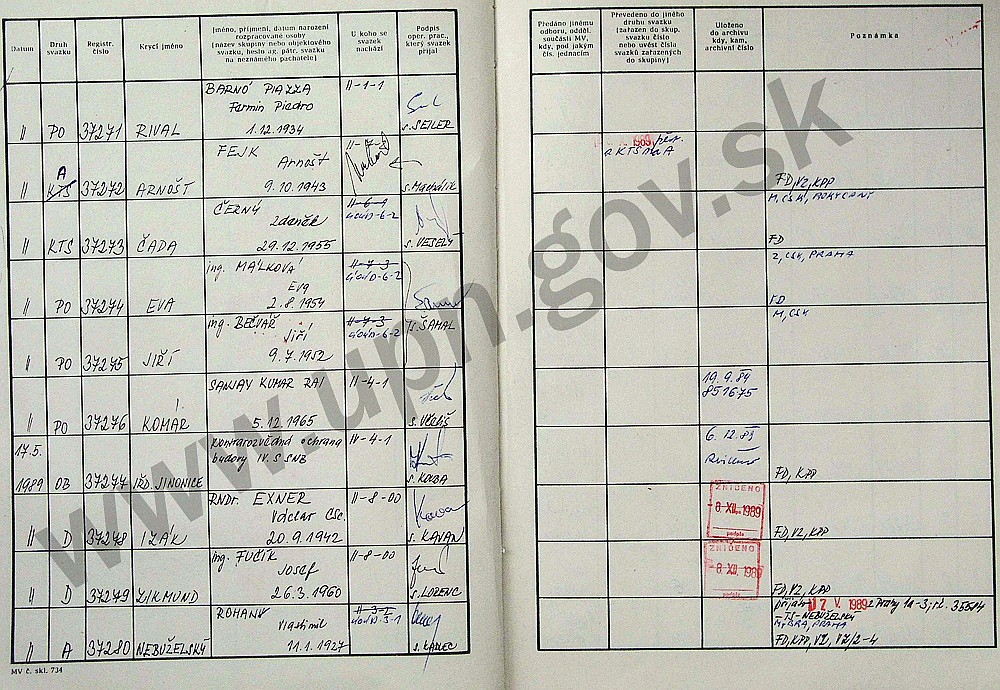 Datum
Druh svazku
Registr. číslo
Krycí jméno
Jméno, příjmení, datum narození rozpracované osoby (název skupiny nebo objektového svazku, heslo ag. pátr. svazku na neznámého pachatele)
U koho se svazek nachází
Podpis oper. prac., který svazek přijal
Předáno jinému odboru, odděl. součásti MV, kdy, pod jakým čís. jednacím
Převedeno do jiného druhu svazku (zařazen do skup. svazku číslo nebo uvést čísla svazků zařazených do skupiny)
Uloženo do archivu kdy, kam, archivní číslo
Poznámka
BARNÓ PIAZZA II-1-1
Fermin Piedro
II PO 37271 RIVAL 1.12.1934 s. SEILER
FEJK II-7-8
A Arnošt
II KTS 37272 ARNOŠT 9.10.1943 s. Machálik
1989 a KTS na A
FD, VZ, KPP
ČERNÝ II-6-1
Zdeněk
II KTS 37273 ČADA 29.12.1955 s. VESELÝ
M, CSK, ROKYCANY
FD
ing. MÁLKOVÁ II-7-3
Eva
II PO 37274 EVA 2.8.1954
Z, CSK, PRAHA
FD
ing. BEČVÁŘ II-7-3
Jiří s. ŠAMAL
II PO 37275 JIŘÍ 9.7.1952
M, CSK
SANJAY KUMAR RAI II-4-1
II PO 37276 KOMÁR 5.12.1965
19.9.89
851675
17.5. Kontrarozvědná ochrana IV-4-1
budovy IV. S SNB
1989 OB 37277 IŘD. JINONICE s. KOUBA
6.12.89
FD, KPP
RNDr. EXNER II-8-00
Václav CSc.
II D 37278 IZÁK 20.9.1942 s. KAVAN
ZNIČENO
8. XII. 1989
podpis
FD, VZ, KPP
ing. FUČÍK II-8-00
Josef
II D 37279 ZIKMUND 26.3.1960 s. LORENC
ZNIČENO
8. XII. 1989
podpis
FD, VZ, KPP
ROHAN II-3-1
Vlastimil
II A 37280 NEBUŽELSKÝ 11.1.1927 s. KADLEC
přijato 17. V. 1989 z Prahy
-TS-NEBUŽELSKÝ
FD, KPP, VZ, VZ/2-4
MV č. skl. 734
www.upn.gov.sk